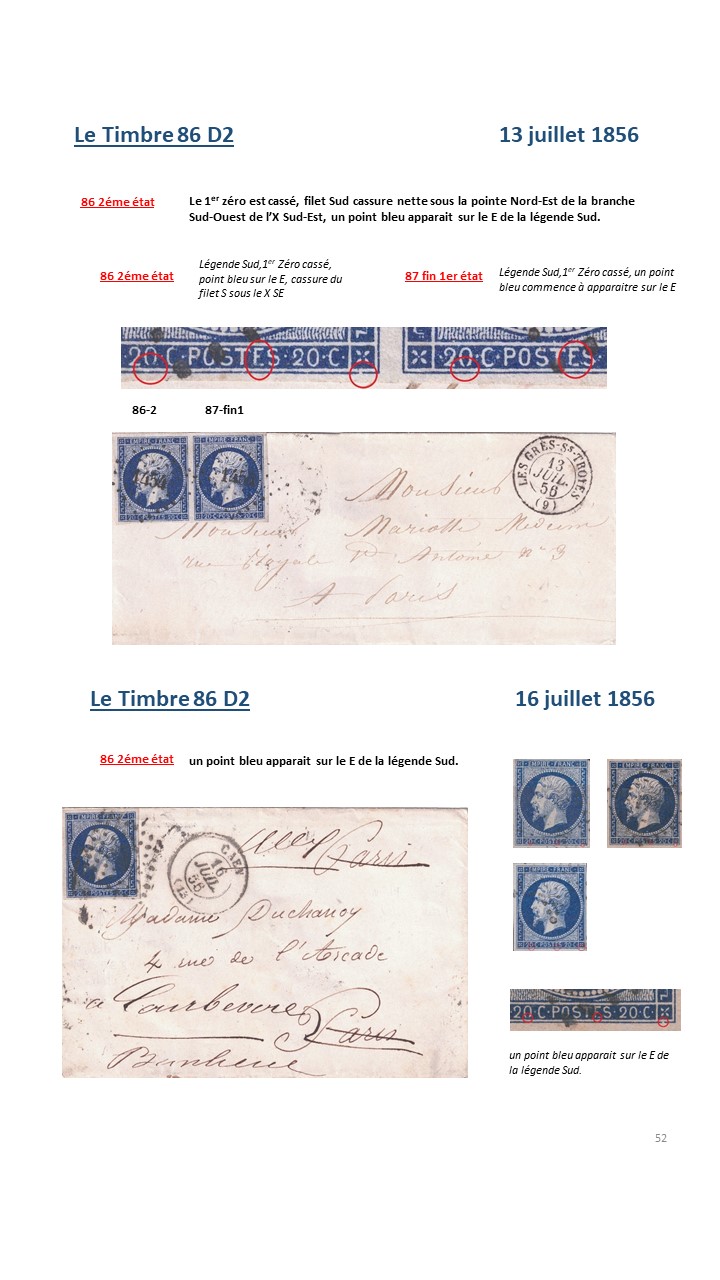 Le Timbre 86 D2
13 juillet 1856
86 2éme état
Le 1er zéro est cassé, filet Sud cassure nette sous la pointe Nord-Est de la branche
Sud-Ouest de l'X Sud-Est, un point bleu apparait sur le E de la légende Sud.
86 2éme état
Légende Sud,1er Zéro cassé,
point bleu sur le E, cassure du
filet S sous le X SE
87 fin 1er état
Légende Sud,1er Zéro cassé, un point
bleu commence à apparaitre sur le E
20·C·POSTES·20·C·
20·C·POSTES
86-2
87-fin1
EMPIRE FRANC
EMPIRE FRANC
1454
20·C·POSTES·20·C·
20·C·POSTES·20·C·
LES GRÈS-SS-TROYES
13
JUIL.
56
(9)
Monsieur
Monsieur Mariotte Medecin
rue Royale St Antoine n° 3
A Paris
Le Timbre 86 D2
16 juillet 1856
86 2éme état
un point bleu apparait sur le E de la légende Sud.
EMPIRE FRANC
POSTES 20·C
CAEN
16
JUIL.
56
(13)
Paris
Madame Duchanoy
4 rue de l'Arcade
a Courbevoie Paris
Banlieue
EMPIRE FRANC
20·C·POSTES·20·C
EMPIRE FRANC
20·C·POSTES·20·C
EMPIRE FRANC
20·C·POSTES·20·C
20·C·POSTES·20·C·
un point bleu apparait sur le E de
la légende Sud.
52